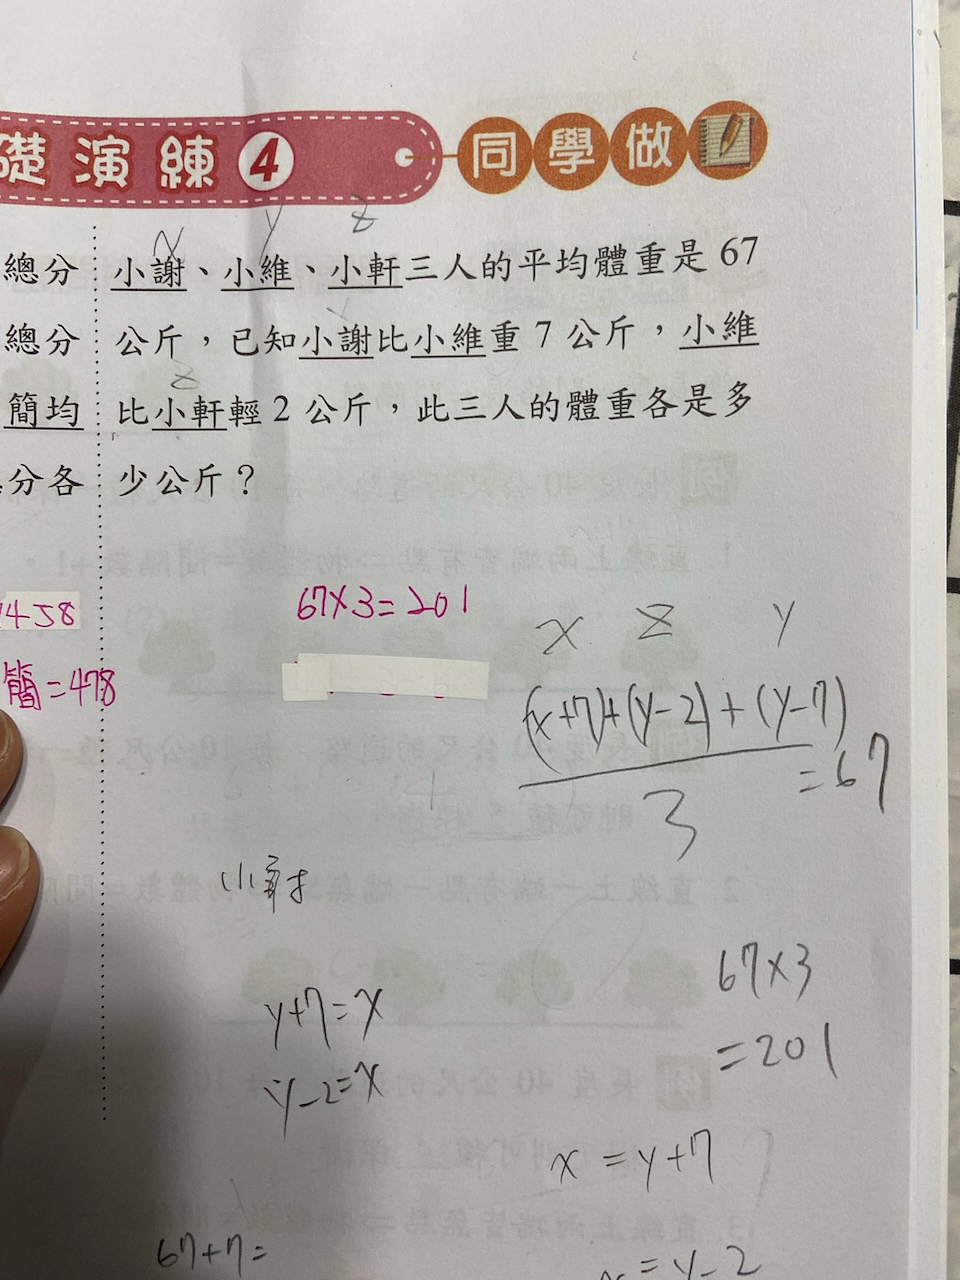 礎演練4 同學做
x y z
總分 小謝、小維、小軒三人的平均體重是 67
總分 公斤，已知小謝比小維重 7 公斤，小維
z
簡均 比小軒輕 2 公斤，此三人的體重各是多
分各 少公斤？
458 67×3=201
x z y
簡=478 (x+7)+(y-2)+(y-7)
=67
3
67×3
y+7=x
=201
y-2=x
x=y+7
67+7=
=y-2